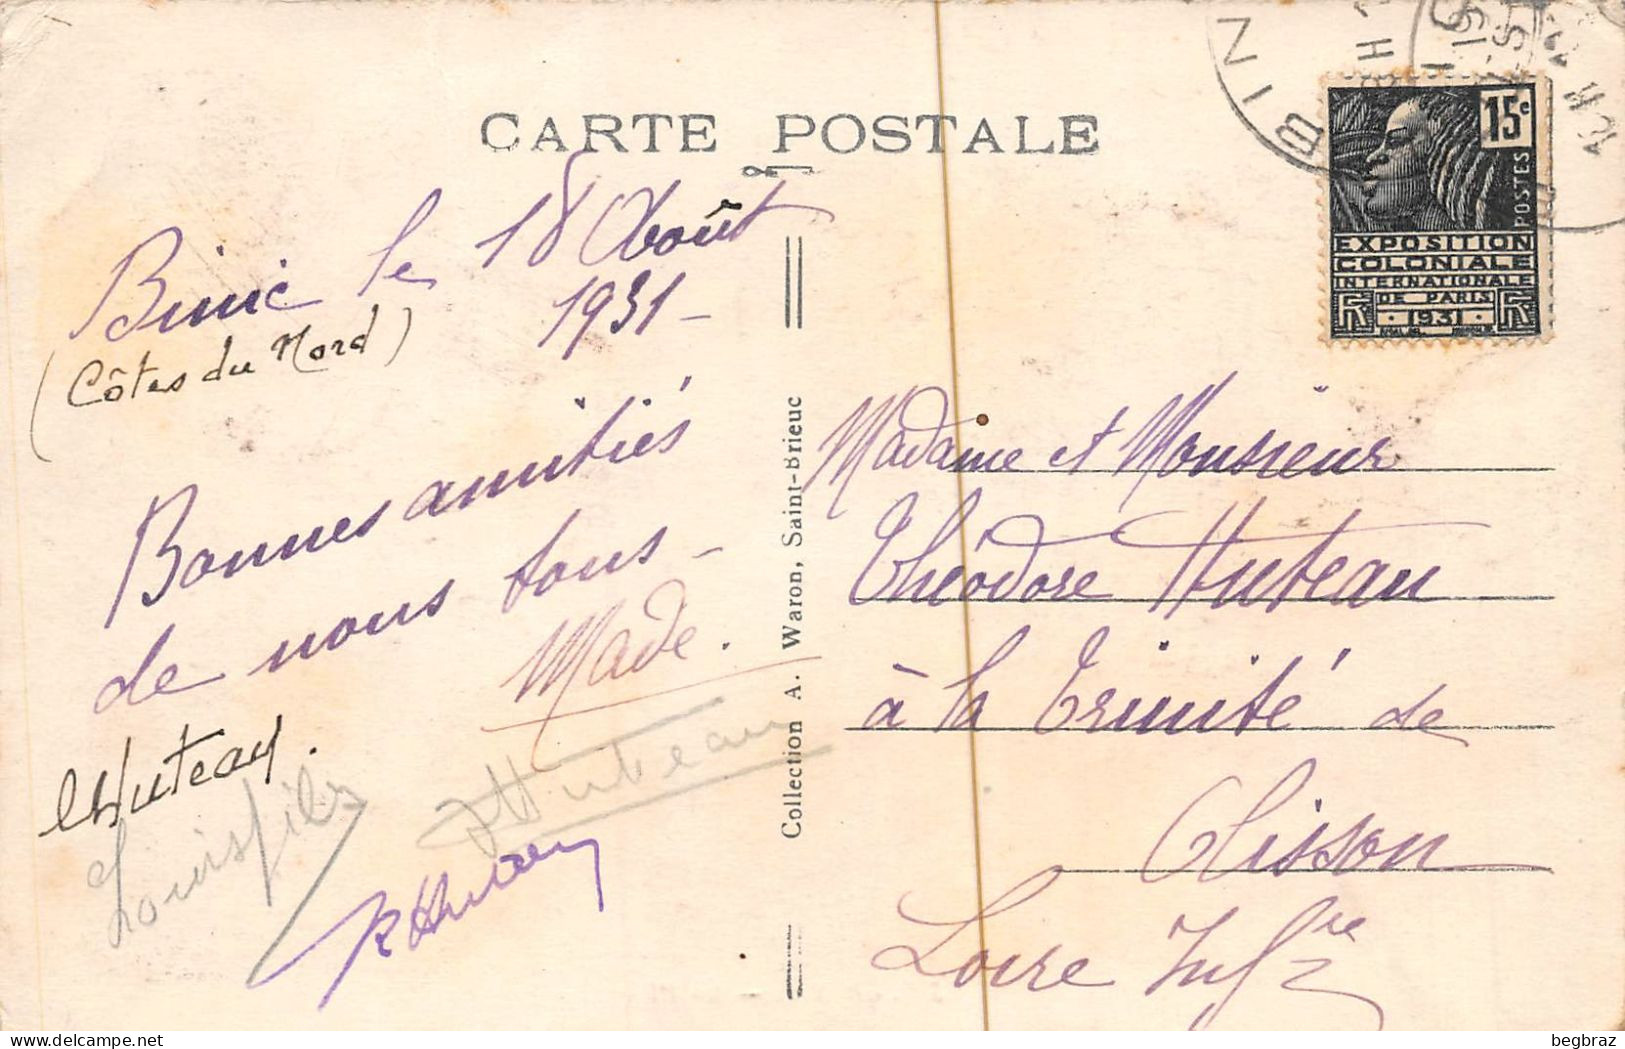 CARTE POSTALE
Binic le 18 Août
1931 -
(Côtes du Nord)
Bonnes amitiés
de nous tous -
Made.
Huteau.
Louis fils
Huteau
R Huteau
Collection A. Waron, Saint-Brieuc
BIN
15c
POSTES
EXPOSITION
COLONIALE
INTERNATIONALE
DE PARIS
1931
Madame et Monsieur
Théodore Huteau
à la Trinité de
Clisson
Loire Infre
begbraz